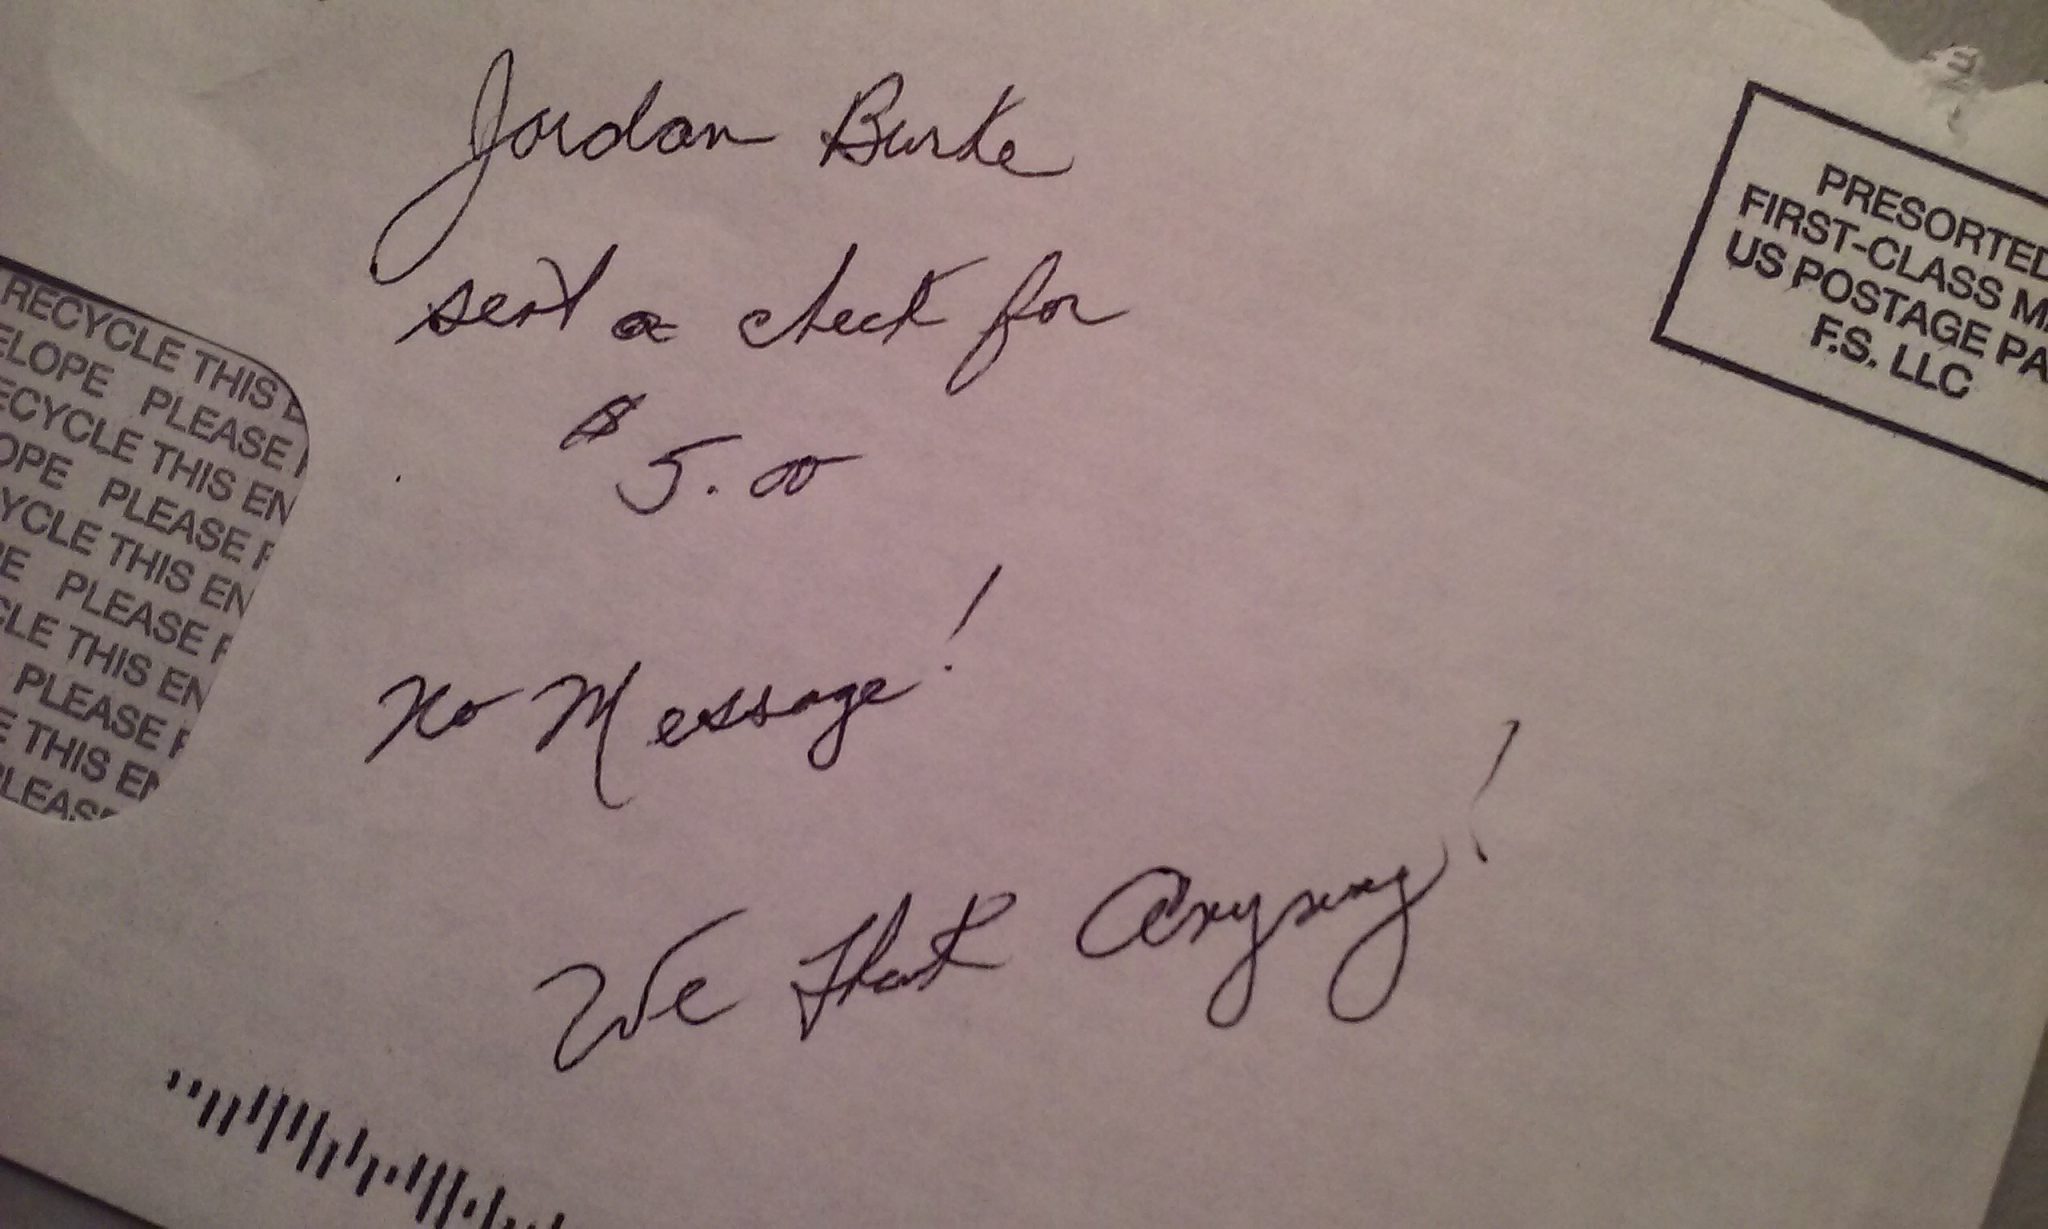 Jordan Burke
sent a check for
$5.00
No Message!
We Thank Anyway!
PRESORTED
FIRST-CLASS MA
US POSTAGE PA
F.S. LLC
RECYCLE THIS E
ELOPE PLEASE R
ECYCLE THIS EN
OPE PLEASE R
YCLE THIS EN
E PLEASE R
CLE THIS EN
PLEASE R
E THIS EN
PLEASE